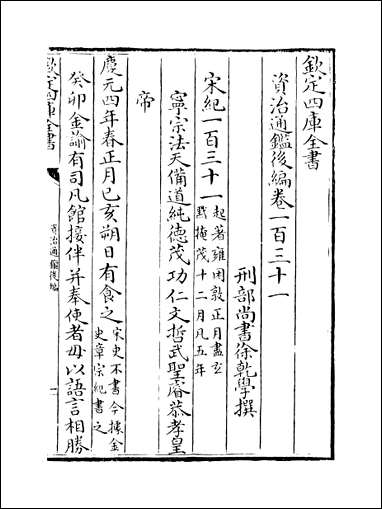 欽定四庫全書
資治通鑑後編卷一百三十一
刑部尚書徐乾學撰
宋紀一百三十一
起著雍困敦正月盡玄
黓掩茂十二月凡五年
寧宗法天備道純德茂功仁文哲武聖睿恭孝皇
帝
慶元四年春正月己亥朔日有食之
宋史不書今據金
史章宗紀書之
癸卯金諭有司凡館接伴并奉使者毋以語言相勝
欽定四庫全書
資治通鑑後編